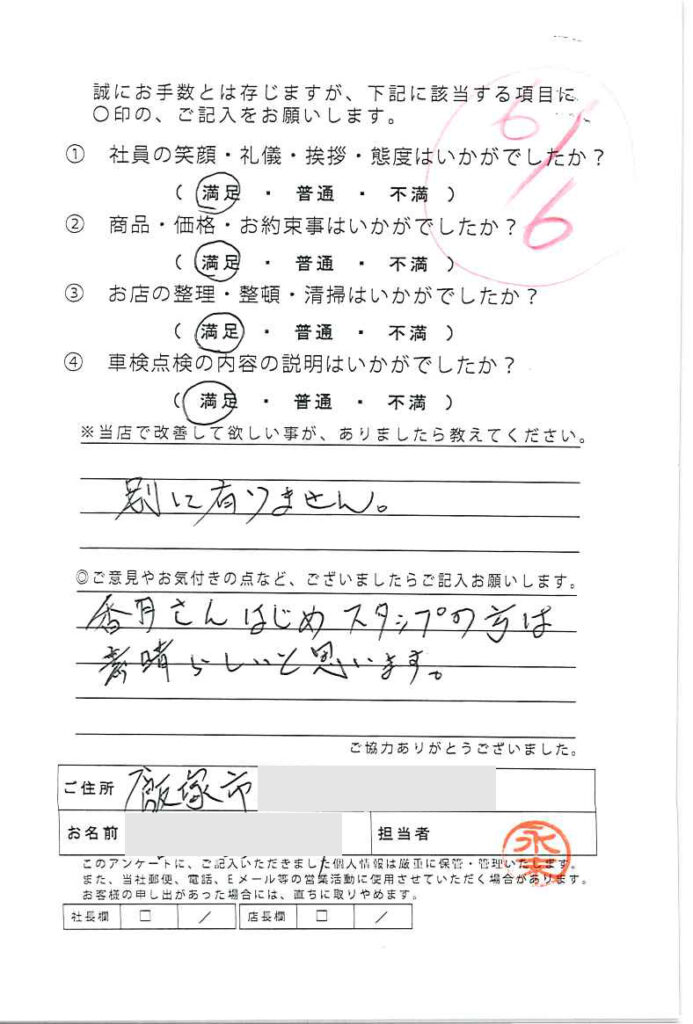 誠にお手数とは存じますが、下記に該当する項目に
〇印の、ご記入をお願いします。
6/6
① 社員の笑顔・礼儀・挨拶・態度はいかがでしたか？
（ 満足 ・ 普通 ・ 不満 ）
② 商品・価格・お約束事はいかがでしたか？
（ 満足 ・ 普通 ・ 不満 ）
③ お店の整理・整頓・清掃はいかがでしたか？
（ 満足 ・ 普通 ・ 不満 ）
④ 車検点検の内容の説明はいかがでしたか？
（ 満足 ・ 普通 ・ 不満 ）
※当店で改善して欲しい事が、ありましたら教えてください。
別に有りません。
◎ご意見やお気付きの点など、ございましたらご記入お願いします。
香月さんはじめスタップの方は
素晴らしいと思います。
ご協力ありがとうございました。
ご住所 飯塚市
お名前 担当者
このアンケートに、ご記入いただきました個人情報は厳重に保管・管理いたします。
また、当社郵便、電話、Eメール等の営業活動に使用させていただく場合があります。
お客様の申し出があった場合には、直ちに取りやめます。
社長欄 □ ／ 店長欄 □ ／